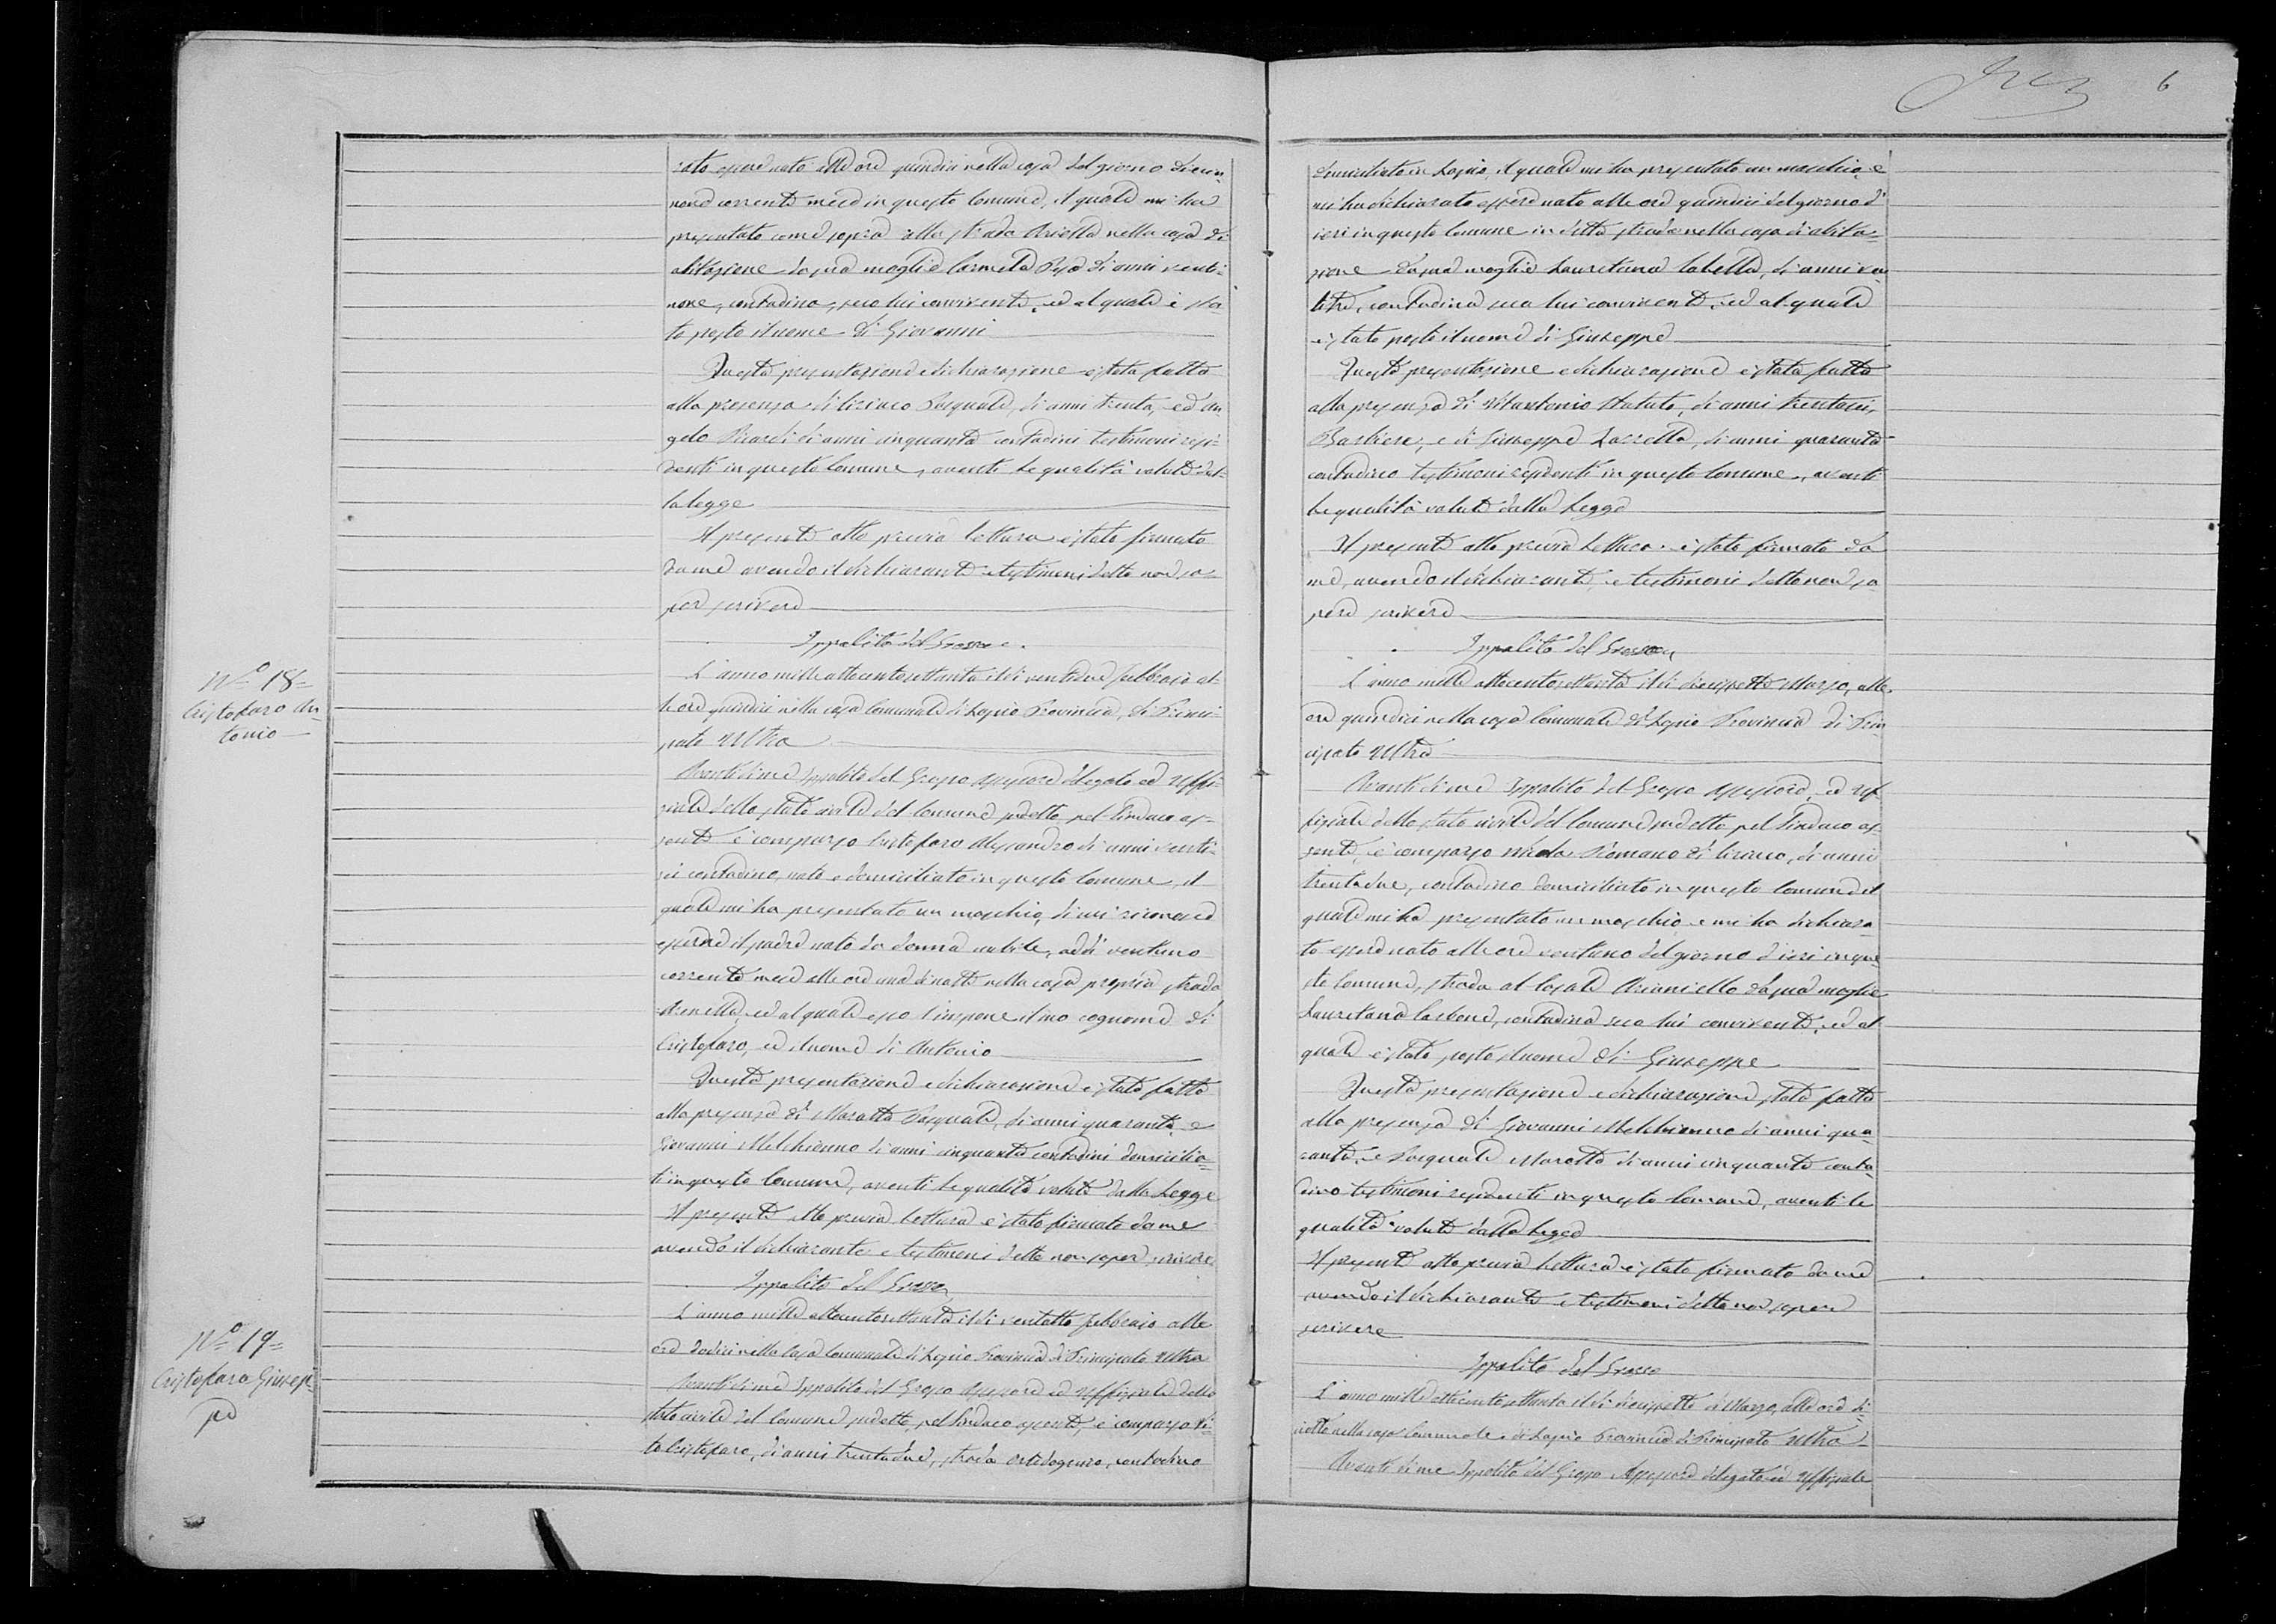 rato essere nato alle ore quindici nella casa del giorno dician
nove corrente mese in questo Comune, il quale mi ha
presentato come sopra alla strada Ariella nella casa di
abitazione da sua moglie Carmela di anni venti=
nove, contadina, seco lui convivente, ed al quale è sta
to posto il nome di Giovanni
Questa presentazione e dichiarazione è stata fatta
alla presenza di Ciriaco Pasquale, di anni trenta, ed An
gelo Picardi di anni cinquanta contadini testimoni resi=
denti in questo Comune, aventi le qualità volute dal=
la legge
Il presente atto previa lettura è stato firmato
da me avendo il dichiarante e testimoni detto non sa=
per scrivere
Ippolito del Grosso
Nº 18=
Cristofaro An
tonio
L'anno mille ottocento settanta il dì ventidue febbraio al=
le ore quindici nella casa Comunale di Lapio Provincia di Princi=
pato Ultra
Avanti di me Ippolito del Grosso Assessore delegato ed Uffi=
ziale dello stato civile del Comune sudetto pel Sindaco as=
sente è comparso Cristofaro Alessandro di anni venti=
sei contadino, nato e domiciliato in questo Comune, il
quale mi ha presentato un maschio, di cui riconosce
esserne il padre nato da donna nubile, addì ventuno
corrente mese alle ore una di notte nella casa propria strada
ed al quale esso l'impone il suo cognome di
Cristofaro, ed il nome di Antonio
Questa presentazione e dichiarazione è stata fatta
alla presenza di Marotta Pasquale, di anni quaranta, e
Giovanni Melchionno di anni cinquanta contadini domicilia=
ti in questo Comune, aventi le qualità volute dalla Legge
Il presente atto previa lettura è stato firmato da me
avendo il dichiarante e testimoni detto non saper scrivere
Ippolito del Grosso
Nº 19=
Cristofaro Giusep=
pe
L'anno mille ottocentosettanta il dì ventotto febbraio alle
ore dodici nella Casa Comunale di Lapio Provincia di Principato Ultra
Avanti di me Ippolito del Grosso Assessore ed Uffiziale dello
stato civile del Comune sudetto, pel Sindaco assente, è comparso Vi=
to Cristofaro, di anni trentadue, strada contadino
6
domiciliato in Lapio, il quale mi ha presentato un maschio, e
mi ha dichiarato essere nato alle ore quindici del giorno d'
ieri in questo Comune in detta strada nella casa di abita=
zione da sua moglie Lauretana Cabella, di anni ven
titre, contadina seco lui convivente, ed al quale
è stato posto il nome di Giuseppe
Questa presentazione e dichiarazione è stata fatta
alla presenza di Vitantonio Statuto, di anni trentasei,
Barbiere, e di Giuseppe di anni quaranta
contadino testimoni residenti in questo Comune, aventi
le qualità volute dalla Legge
Il presente atto previa lettura è stato firmato da
me, avendo il dichiarante, e testimoni detto non sa=
pere scrivere
Ippolito del Grosso
L'anno mille ottocento settanta il dì diecissette Marzo, alle
ore quindici nella casa Comunale di Lapio Provincia di Prin
cipato Ultra
Avanti di me Ippolito del Grosso Assessore, ed Uf
fiziale dello stato civile del Comune sudetto pel Sindaco as=
sente, è comparso Romano di Ciriaco, di anni
trentadue, contadino domiciliato in questo Comune il
quale mi ha presentato un maschio e mi ha dichiara
to essere nato alle ore ventuno del giorno d'ieri in que
sto Comune, strada al Casale Arianiello da sua moglie
Lauretana Carbone, contadina seco lui convivente, ed al
quale è stato posto il nome di Giuseppe
Questa presentazione e dichiarazione stata fatta
alla presenza di Giovanni Melchionno di anni qua=
ranta, e Pasquale Marotta di anni cinquanta conta
dino testimoni residenti in questo Comune, aventi le
qualità volute dalla Legge
Il presente atto previa lettura è stato firmato da me
avendo il dichiarante e testimoni detto non sapere
scrivere
Ippolito del Grosso
L'anno mille ottocento settanta il dì diecissette di Marzo, alle ore di
ciotto nella casa Comunale di Lapio Provincia di Principato Ultra
Avanti di me Ippolito del Grosso Assessore delegato ed Uffiziale